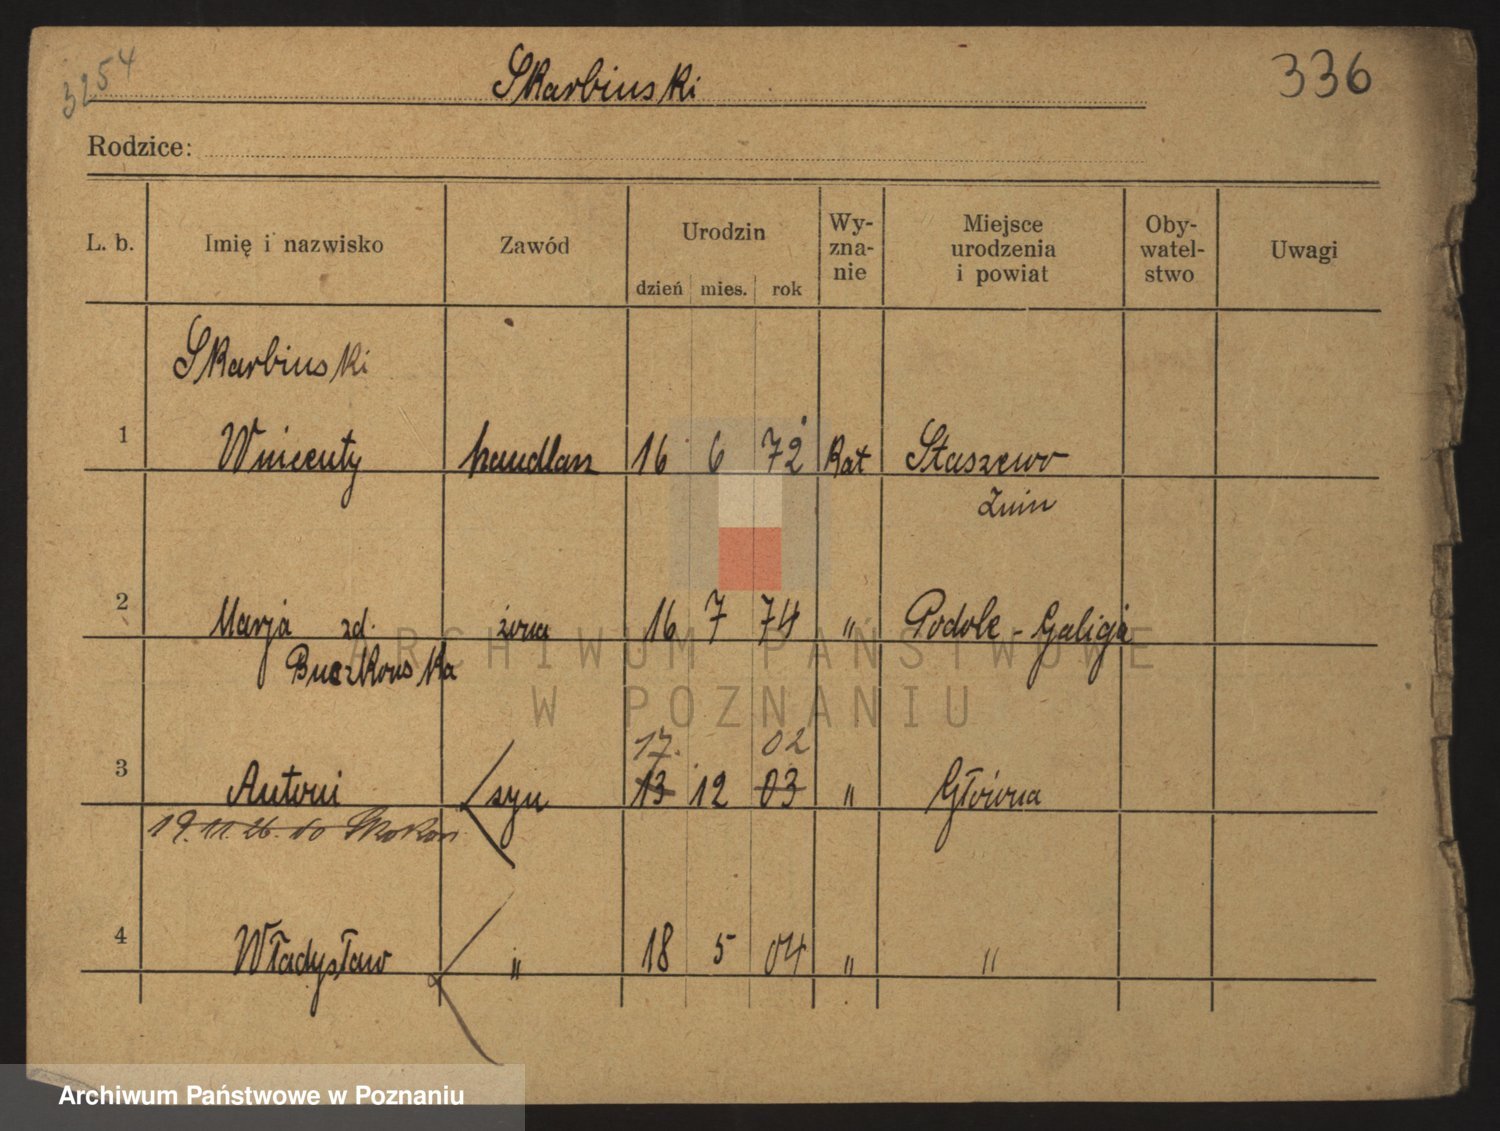 3254
Skarbinski
336
Rodzice:
L. b.
Imię i nazwisko
Zawód
Urodzin
dzień mies. rok
Wy-
zna-
nie
Miejsce
urodzenia
i powiat
Oby-
watel-
stwo
Uwagi
Skarbinski
1 Wincenty handlarz 16 6 72 Kat Staszewo
Żnin
2 Marja zd. żona 16 7 74 " Podole - Galicja
Buczkowska
ARCHIWUM PAŃSTWOWE
W POZNANIU
17. 02
3 Antoni syn 13 12 03 " Główna
19.11.26. do
4 Władysław " 18 5 04 " "
Archiwum Państwowe w Poznaniu